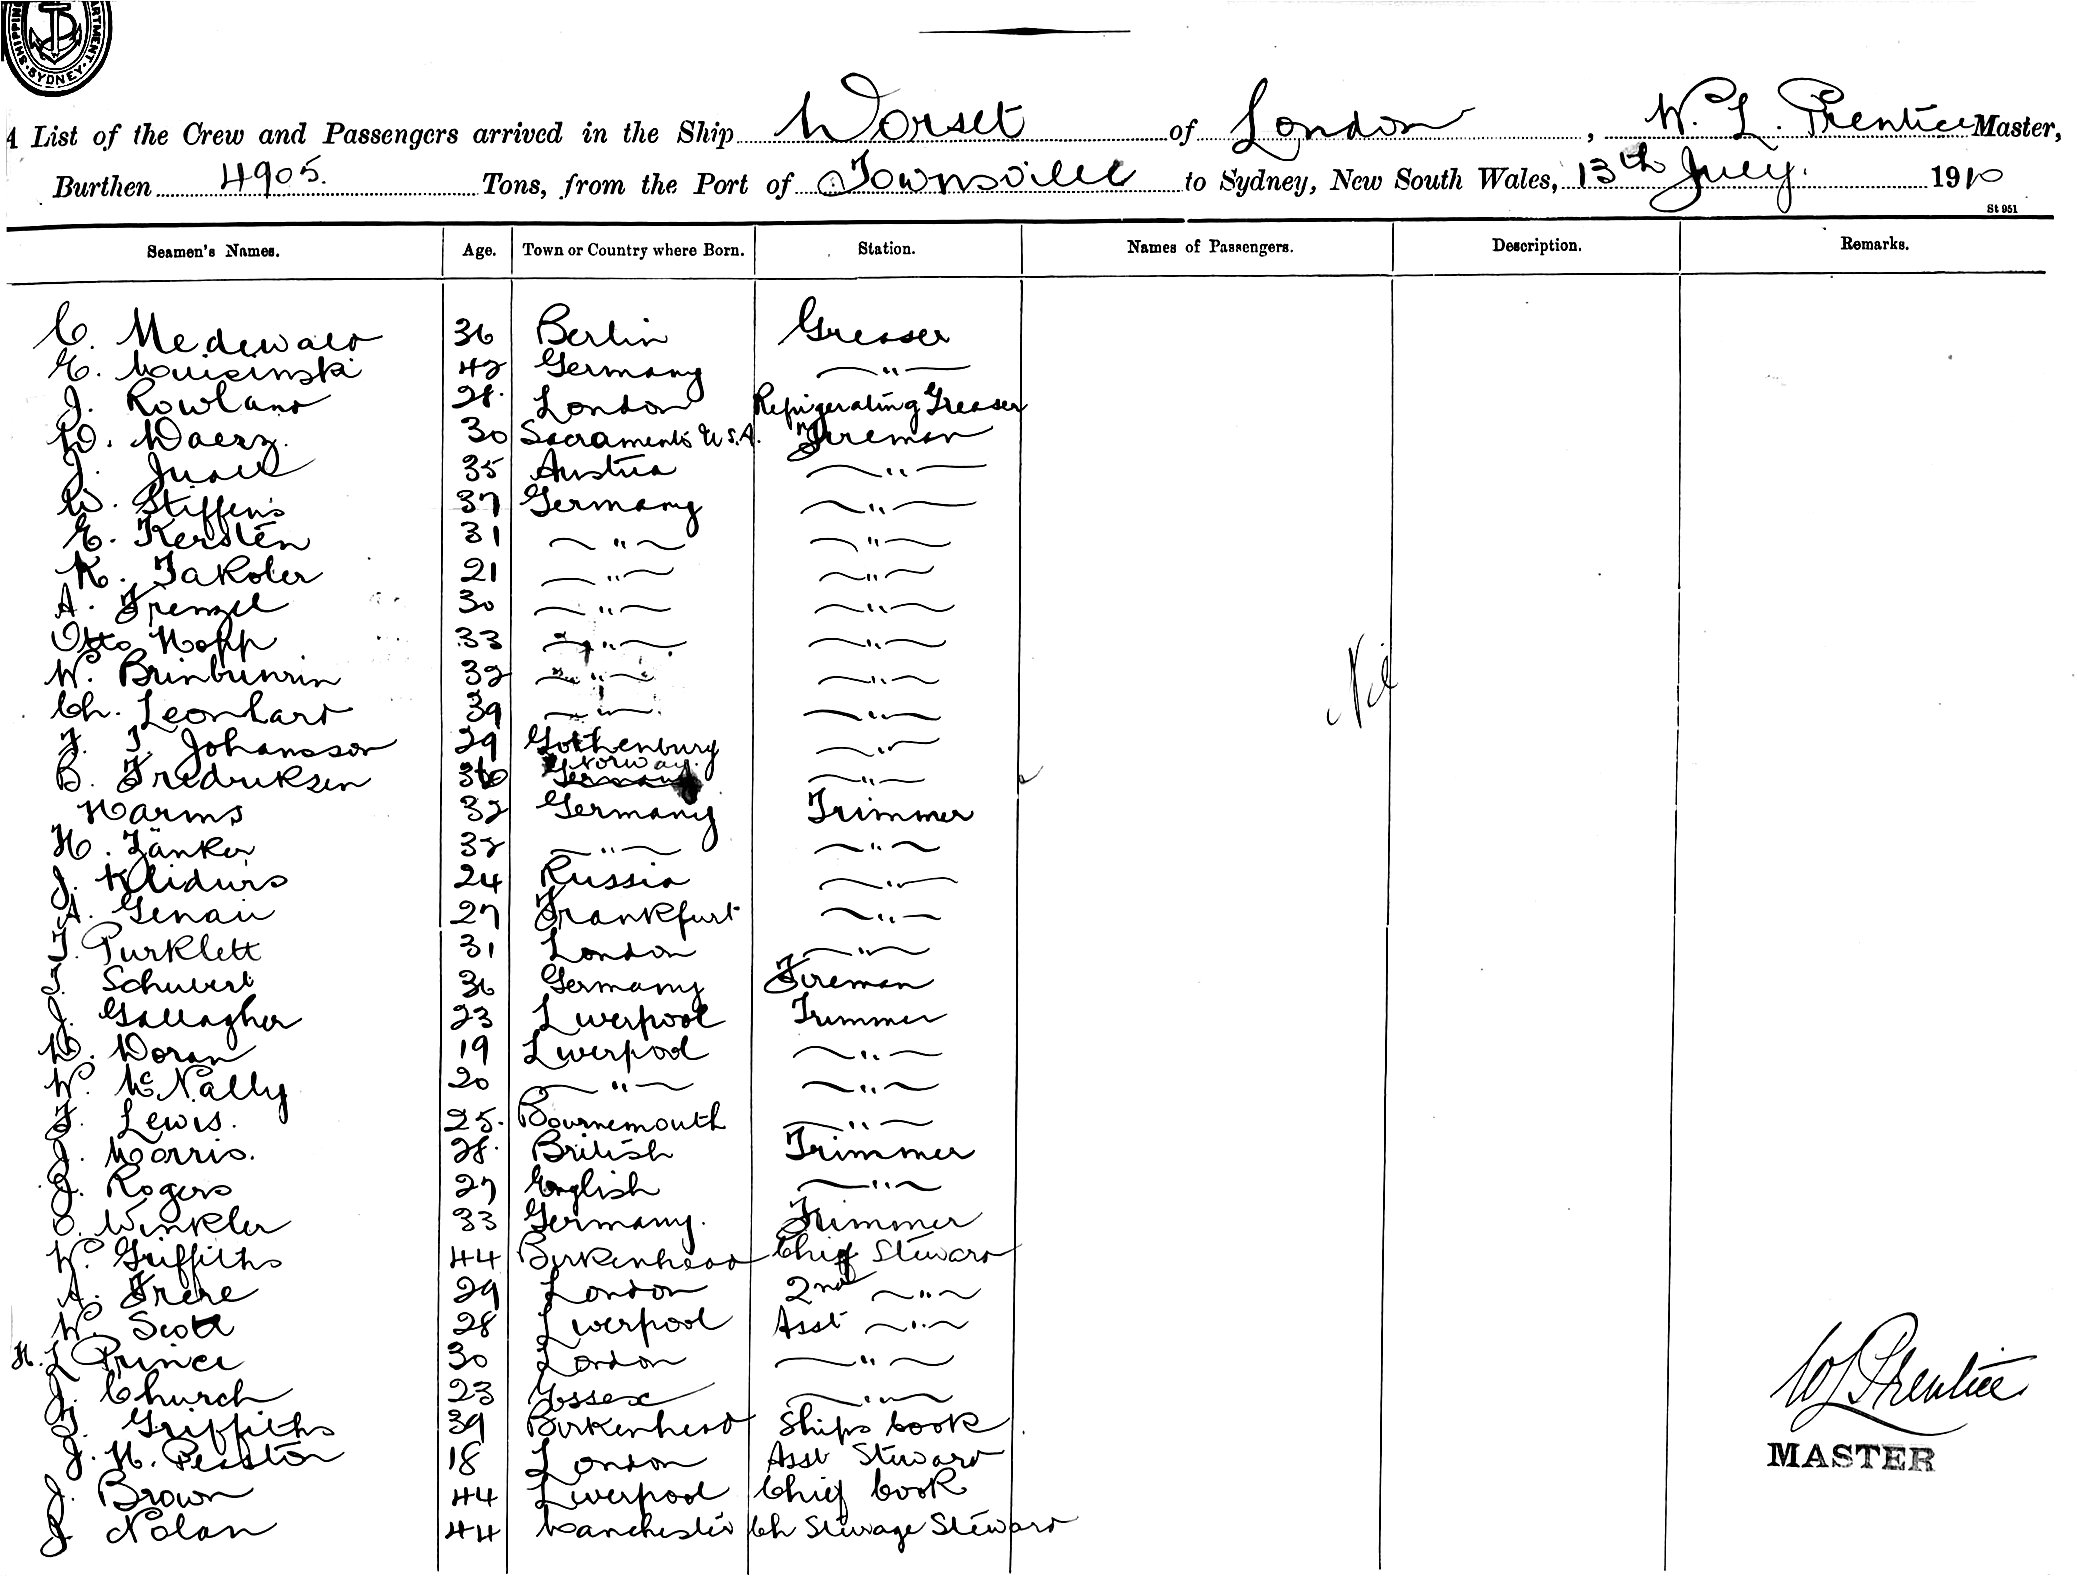 SHIPPING DEPARTMENT SYDNEY
A List of the Crew and Passengers arrived in the Ship Dorset of London, W. L. Prentice Master,
Burthen 4905. Tons, from the Port of Townsville to Sydney, New South Wales, 13th July. 1910
St 951
Seamen's Names. Age. Town or Country where Born. Station. Names of Passengers. Description. Remarks.
C. Medewald 36 Berlin Greaser
E. 42 Germany —"—
J. Rowland 28. London Refrigerating Greaser
D. Daerz. 30 Sacramento U.S.A. Fireman
J. 35 Austria —"—
W. Stiffens 37 Germany —"—
E. Kersten 31 —"— —"—
K. Jakoler 21 —"— —"—
A. Frenzel 30 —"— —"—
Otto Hopp 33 —"— —"—
W. 32 —"— —"—
Ch. Leonhard 39 —"— —"—
J. Johansson 29 Gothenburg —"—
B. Fredriksen 36 Norway. Germany —"—
Harms 32 Germany Trimmer
H. Jänker 32 —"— —"—
J. Klidurs 24 Russia —"—
A. Genau 27 Frankfurt —"—
T. Purklett 31 London —"—
Schubert 36 Germany Fireman
J. Gallagher 23 Liverpool Trimmer
D. Doran 19 Liverpool —"—
W. McNally 20 —"— —"—
F. Lewis. 25. Bournemouth —"—
J. Morris. 28. British Trimmer
J. Rogers 27 English —"—
O. Winkler 33 Germany. Trimmer
W. Griffiths 44 Birkenhead Chief Steward
A. Frere 29 London 2nd —"—
W. Scott 28 Liverpool Asst —"—
H. L Prince 30 London —"—
J. Church 23 Essex —"—
J. Griffiths 39 Birkenhead Ships Cook
J. H. Peaston 18 London Asst Steward
J. Brown 44 Liverpool Chief Cook
J. Nolan 44 Manchester Ch Steerage Steward
Nil
W L Prentice
MASTER